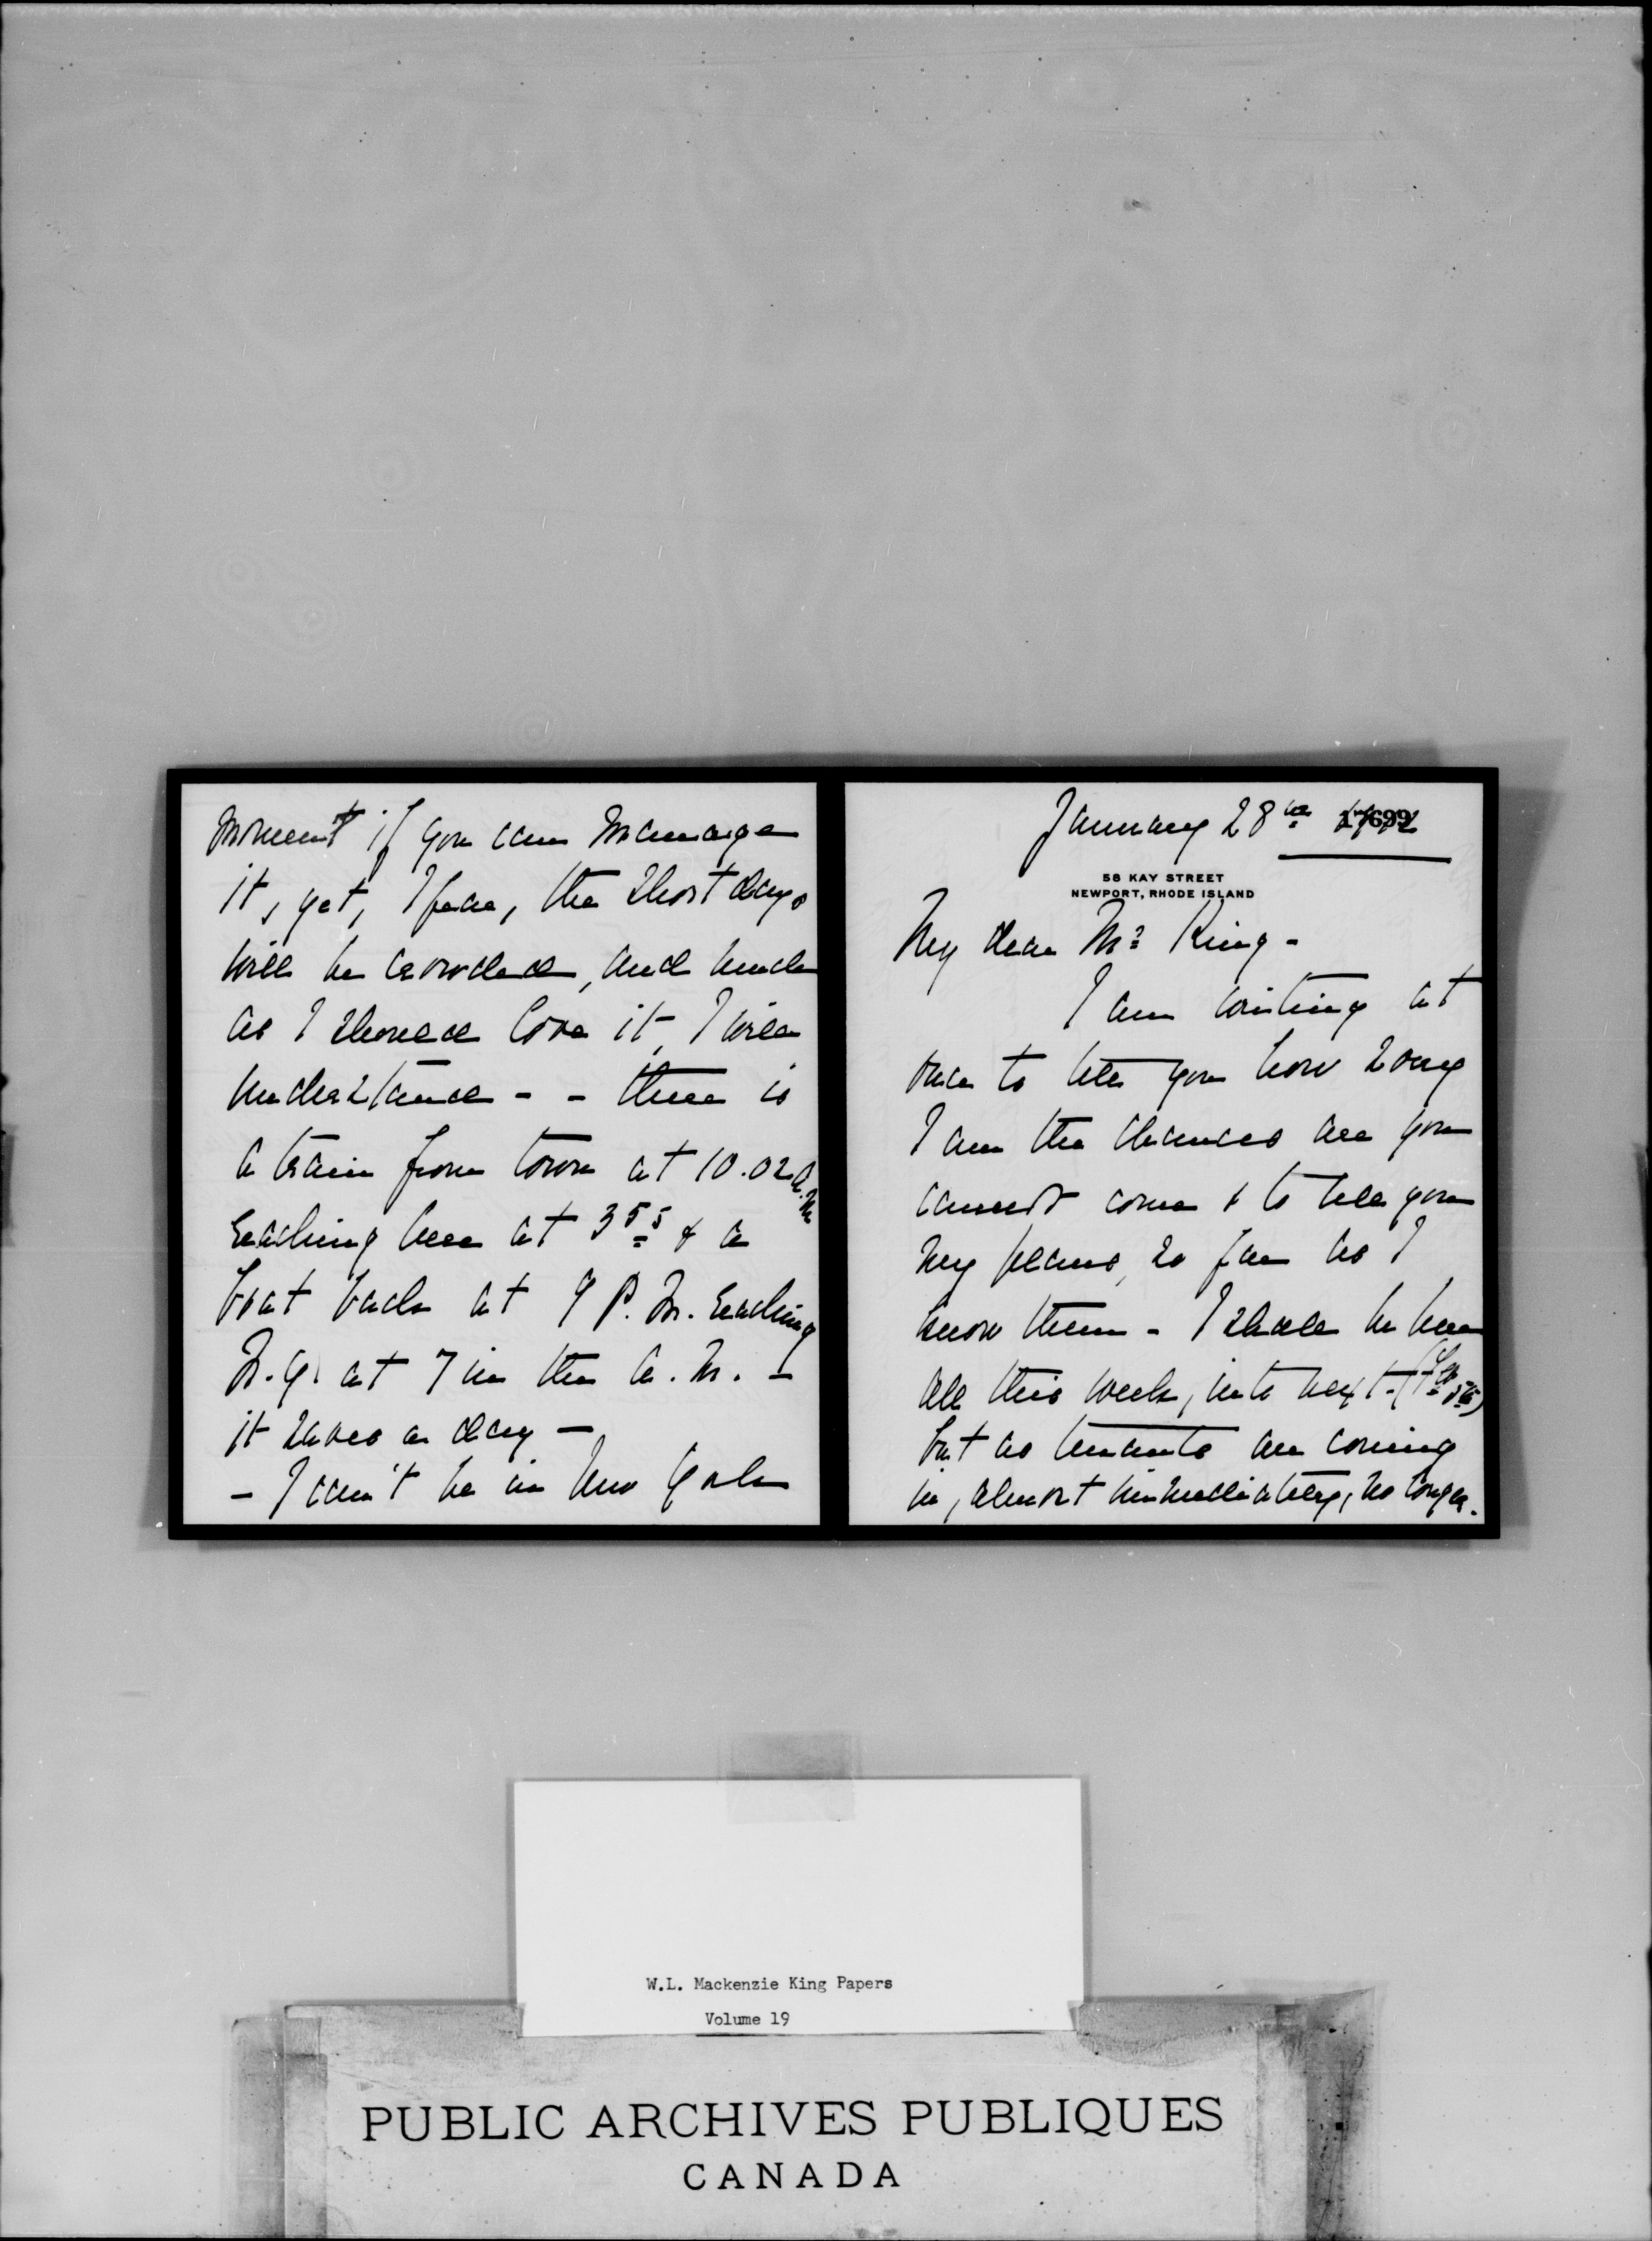 January 28th
17699
58 KAY STREET
NEWPORT, RHODE ISLAND
My dear Mr King -
I am writing at
once to tell you how sorry
I am the chances are you
cannot come & to tell you
my plans, so far as I
know them - I shall be here
all this week, into next
but as tenants are coming
in, almost immediately, no longer.
moment if you can manage
it, yet, I fear, the short days
will be crowded, and much
as I should love it, I will
understand - - there is
a train from town at 10.02 A.M
reaching here at 3 55 & a
boat back at 9 P.M. reaching
N.Y. at 7 in the A.M. -
it saves a day -
- I can't be in New York
W.L. Mackenzie King Papers
Volume 19
PUBLIC ARCHIVES PUBLIQUES
CANADA